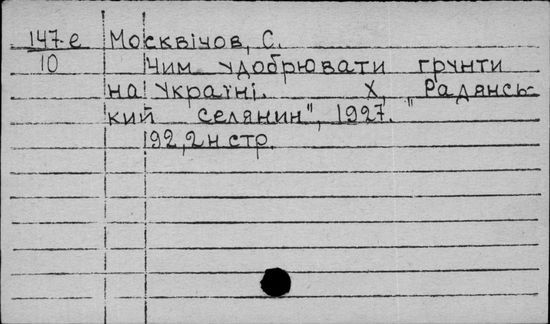 147-е Москвічов, С.
10 Чим удобрювати грунти
на Україні. Х, "Радянсь-
кий селянин", 1927.
192,2 н стр.